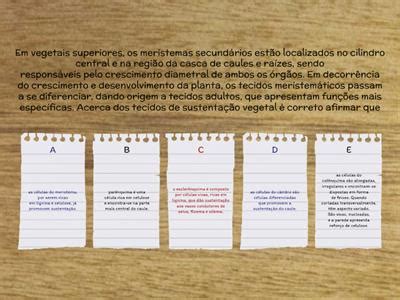 Em vegetais superiores, os meristemas secundários estão localizados no cilindro
central e na região da casca de caules e raízes, sendo
responsáveis pelo crescimento diametral de ambos os órgãos. Em decorrência
do crescimento e desenvolvimento da planta, os tecidos meristemáticos passam
a se diferenciar, dando origem a tecidos adultos, que apresentam funções mais
específicas. Acerca dos tecidos de sustentação vegetal é correto afirmar que
A
as células do meristema,
por serem vivas
em lignina e celulose, já
promovem sustentação.
B
parênquima é uma
célula rica em celulose
e encontra-se na parte
mais central do caule.
C
o esclerênquima é composto
por células vivas, ricas em
lignina, que dão sustentação
aos vasos condutores de
seiva, floema e xilema.
D
as células do câmbio são
células diferenciadas
que promovem a
sustentação do caule.
E
as células do
colênquima são alongadas,
irregulares e encontram-se
dispostas em forma
de feixes. Quando
cortadas transversalmente,
têm aspecto variado.
São vivas, nucleadas,
e a parede apresenta
reforço de celulose.